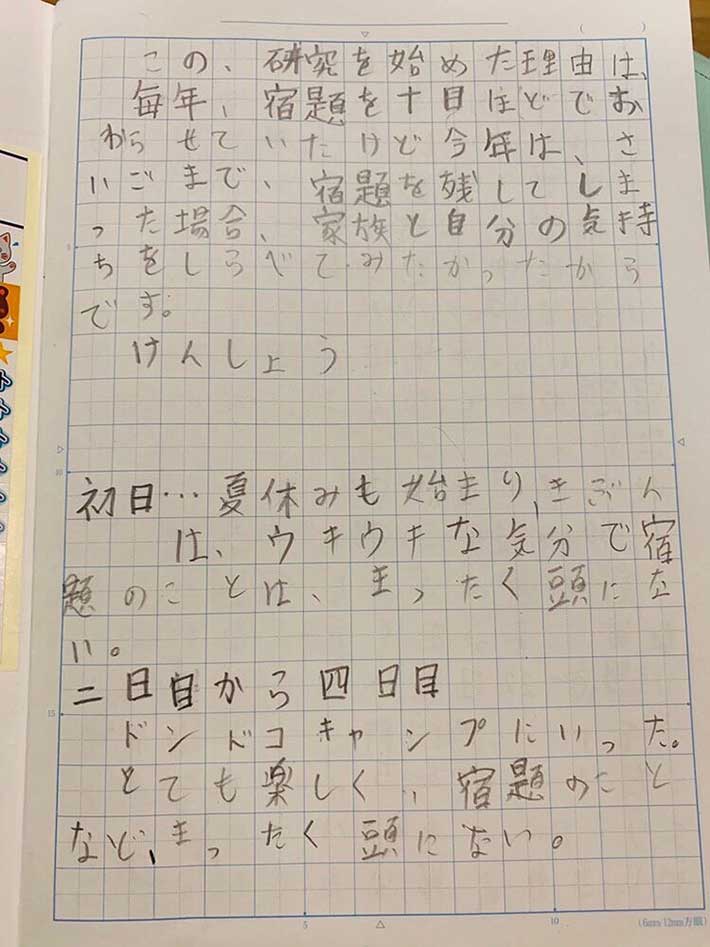 この、研究を始めた理由は、
毎年、宿題を十日ほどでお
わらせていたけど今年は、さ
いごまで、宿題を残してしま
った場合、家族と自分の気持
ちをしらべてみたかったから
です。
けんしょう
初日…夏休みも始まり、きぶん
は、ウキウキな気分で宿
題のことは、まったく頭にな
い。
二日目から四日目
ドンドコキャンプにいった。
とても楽しく、宿題のこと
など、まったく頭にない。
5
10
15
5
10
(6mm/12mm方眼)